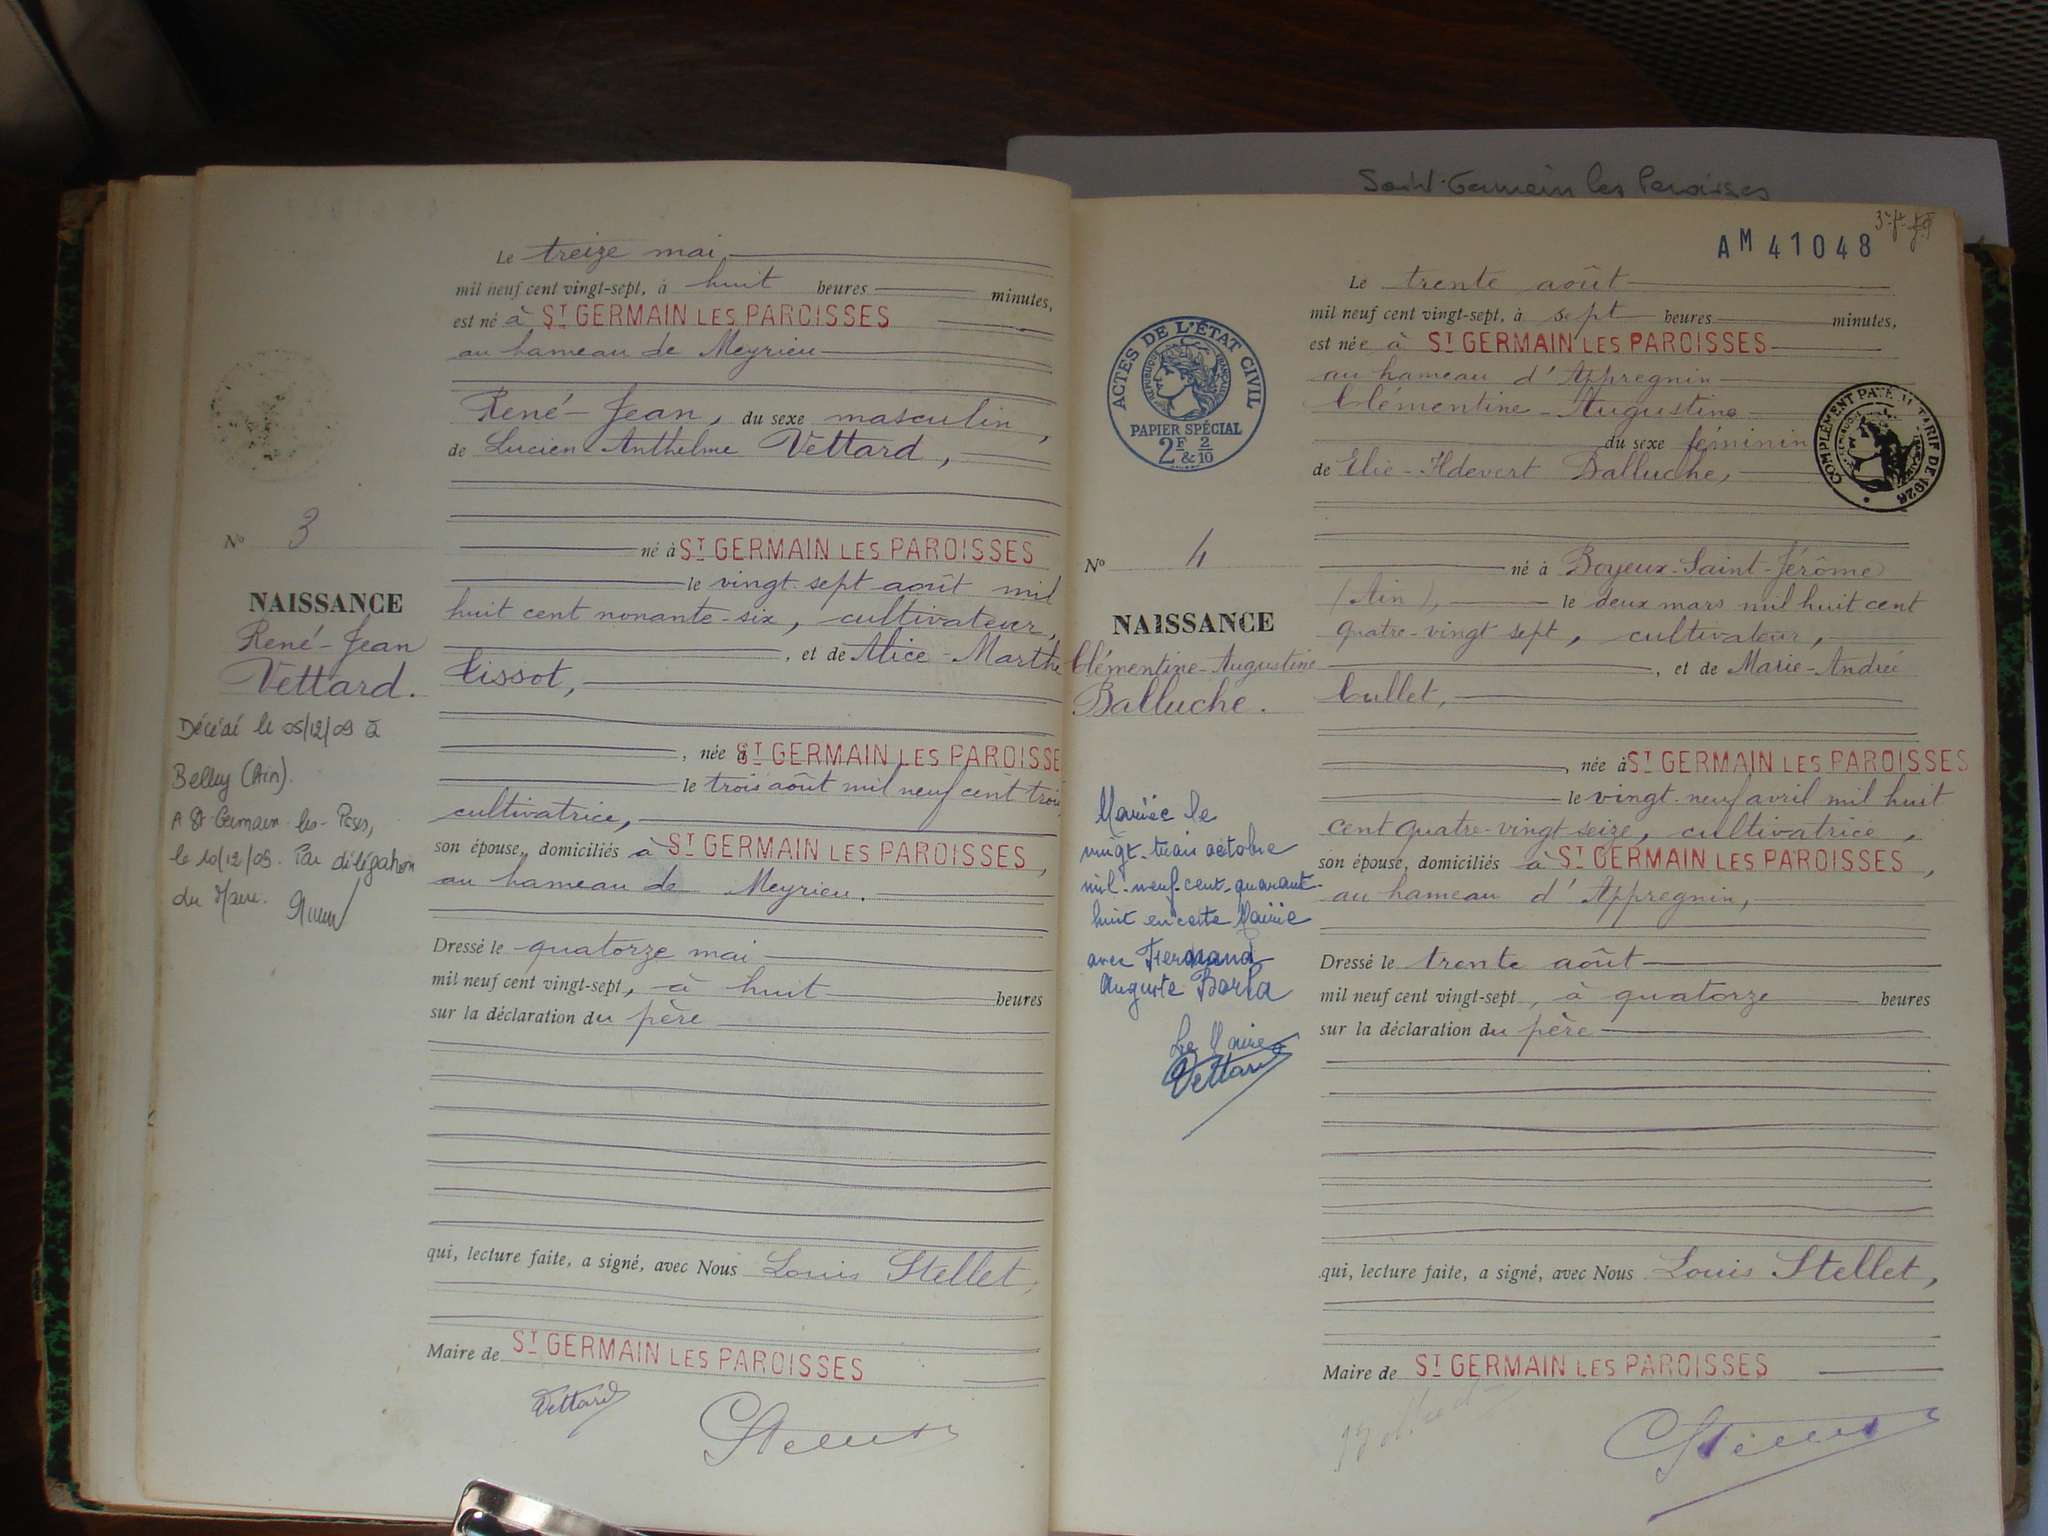 Saint-Germain les Paroisses
Le treize mai
mil neuf cent vingt-sept, à huit heures minutes,
est né à ST GERMAIN LES PAROISSES
au hameau de Meyrieu
René-Jean, du sexe masculin,
de Lucien-Anthelme Vettard,
né à ST GERMAIN LES PAROISSES
le vingt-sept août mil
huit cent nonante-six, cultivateur,
, et de Alice-Marthe
Tissot,
, née à ST GERMAIN LES PAROISSE
le trois août mil neuf cent trois
cultivatrice,
son épouse, domiciliés à ST GERMAIN LES PAROISSES,
au hameau de Meyrieu.
Dressé le quatorze mai
mil neuf cent vingt-sept, à huit heures
sur la déclaration du père
qui, lecture faite, a signé, avec Nous Louis Stellet,
Maire de ST GERMAIN LES PAROISSES
Vettard
Stellet
No 3
NAISSANCE
René-Jean
Vettard.
Décédé le 05/12/09 à
Belley (Ain).
A St Germain-les-Pses,
le 10/12/09. Par délégation
du Maire.
AM 41048
ACTES DE L'ÉTAT CIVIL
RÉPUBLIQUE FRANÇAISE
PAPIER SPÉCIAL
2F & 2/10
COMPLÉMENT PAYÉ AU TARIF DE 1926
Le trente août
mil neuf cent vingt-sept, à sept heures minutes,
est née à ST GERMAIN LES PAROISSES
au hameau d'Appregnin
Clémentine-Augustine
du sexe féminin
de Elie-Hdevert Balluche,
né à Boyeux-Saint-Jérôme
(Ain), le deux mars mil huit cent
quatre-vingt sept, cultivateur,
, et de Marie-Andrée
Cullet,
, née à ST GERMAIN LES PAROISSES
le vingt-neuf avril mil huit
cent quatre-vingt seize, cultivatrice,
son épouse, domiciliés à ST GERMAIN LES PAROISSES,
au hameau d'Appregnin,
Dressé le trente août
mil neuf cent vingt-sept, à quatorze heures
sur la déclaration du père
qui, lecture faite, a signé, avec Nous Louis Stellet,
Maire de ST GERMAIN LES PAROISSES
Stellet
No 4
NAISSANCE
Clémentine-Augustine
Balluche.
Mariée le
vingt-trois octobre
mil-neuf-cent-quarant-
huit en cette Mairie
avec Fernand
Auguste Borla
Le Maire
Vettard